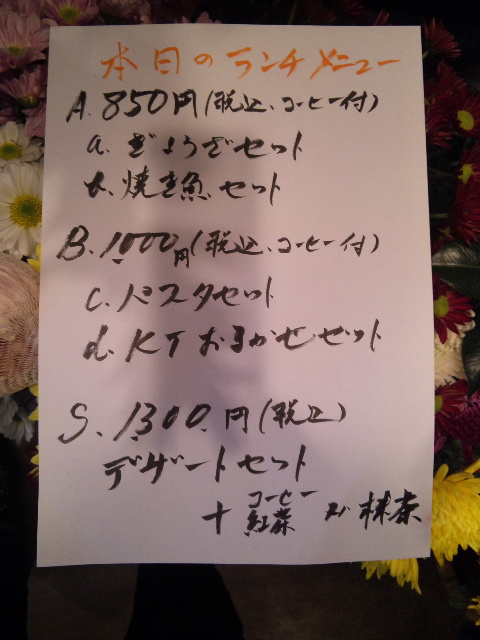 本日のランチメニュー
A. 850円(税込、コーヒー付)
a. ぎょうざセット
b. 焼き魚セット
B. 1,000円(税込、コーヒー付)
c. パスタセット
d. KTおまかせセット
S. 1,300円(税込)
デザートセット
+ コーヒー
紅茶 又は 抹茶